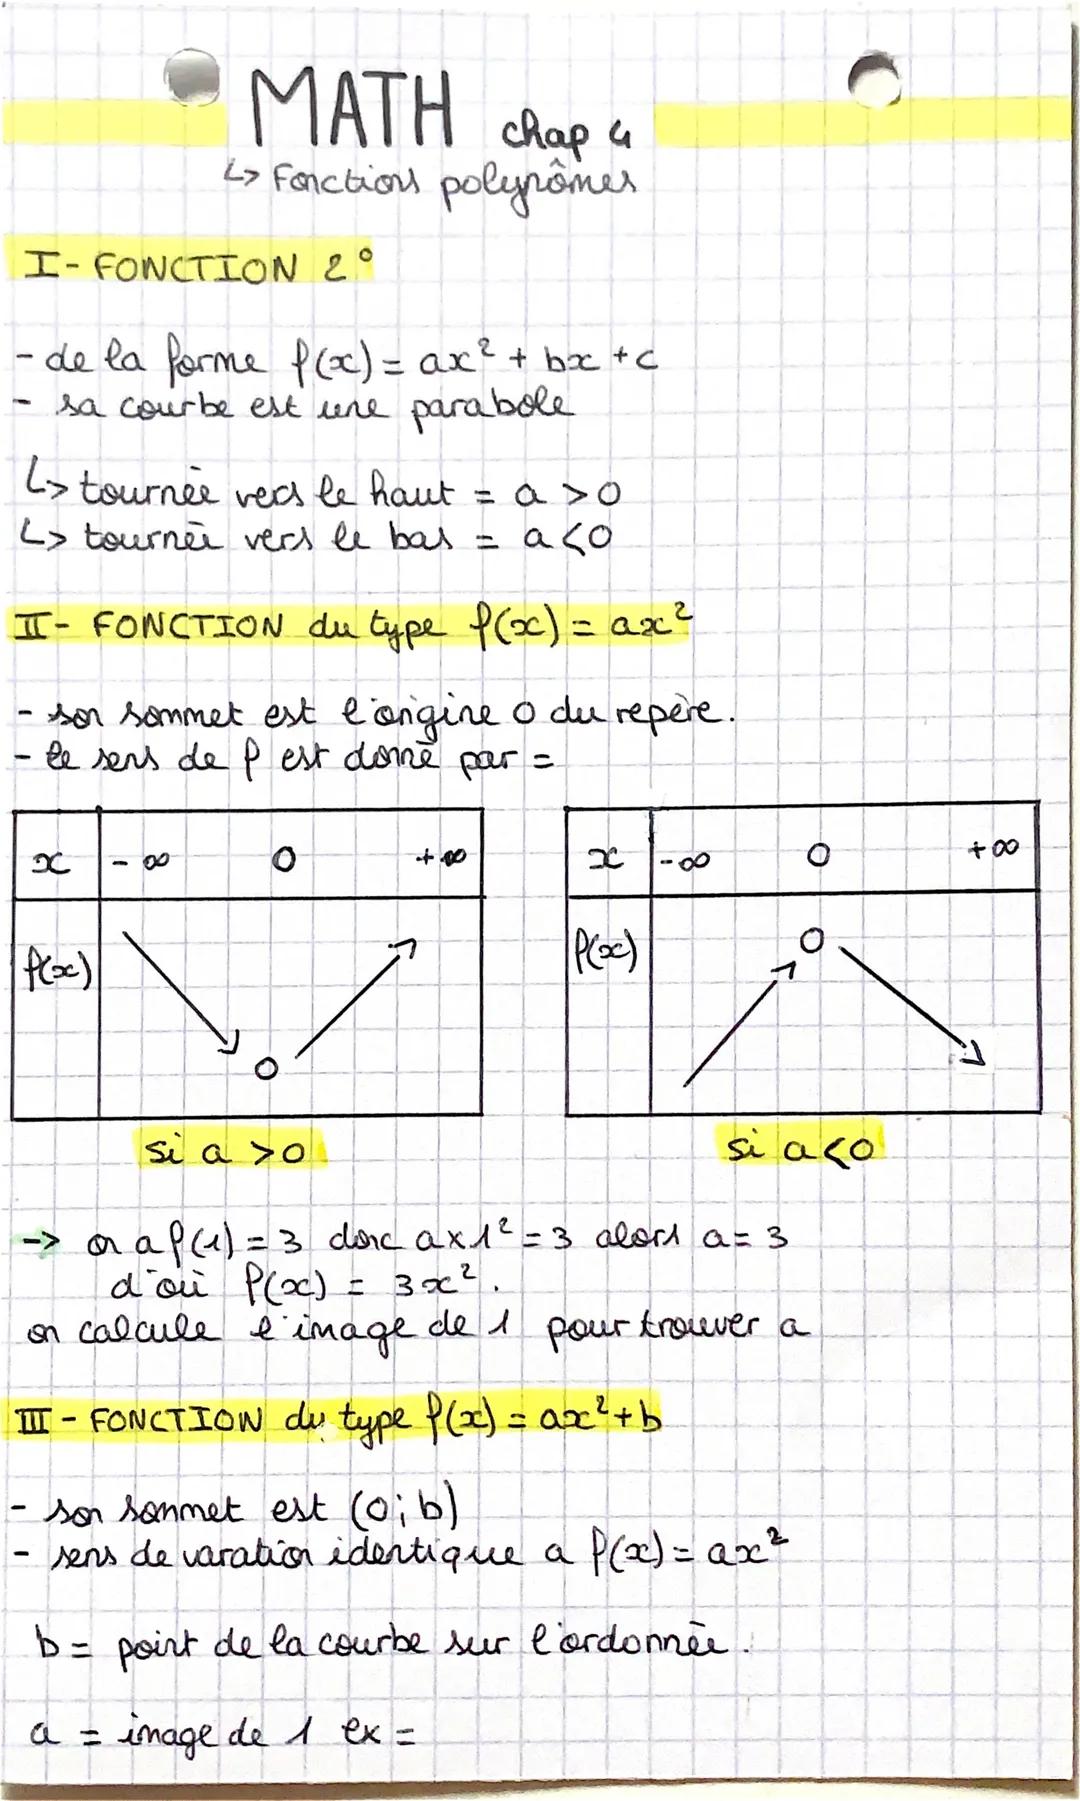 MATH chap 4
↳ Fonctions polynômes
I- FONCTION 2°
- de la forme f(x) = ax² + bx + c
- sa courbe est une parabole
↳ tournée vers le haut = a > 0
↳ tournée vers le bas = a < 0
II- FONCTION du type f(x) = ax²
- son sommet est l'origine O du repère.
- le sens de f est donné par =
x -∞ 0 +∞
f(x) 0
si a > 0
x -∞ 0 +∞
f(x) 0
si a < 0
-> on a f(1) = 3 donc a x 1² = 3 alors a = 3
d'où f(x) = 3x².
on calcule l'image de 1 pour trouver a
III - FONCTION du type f(x) = ax² + b
- son sommet est (0; b)
- sens de varation identique a f(x) = ax²
b = point de la courbe sur l'ordonnée.
a = image de 1 ex =